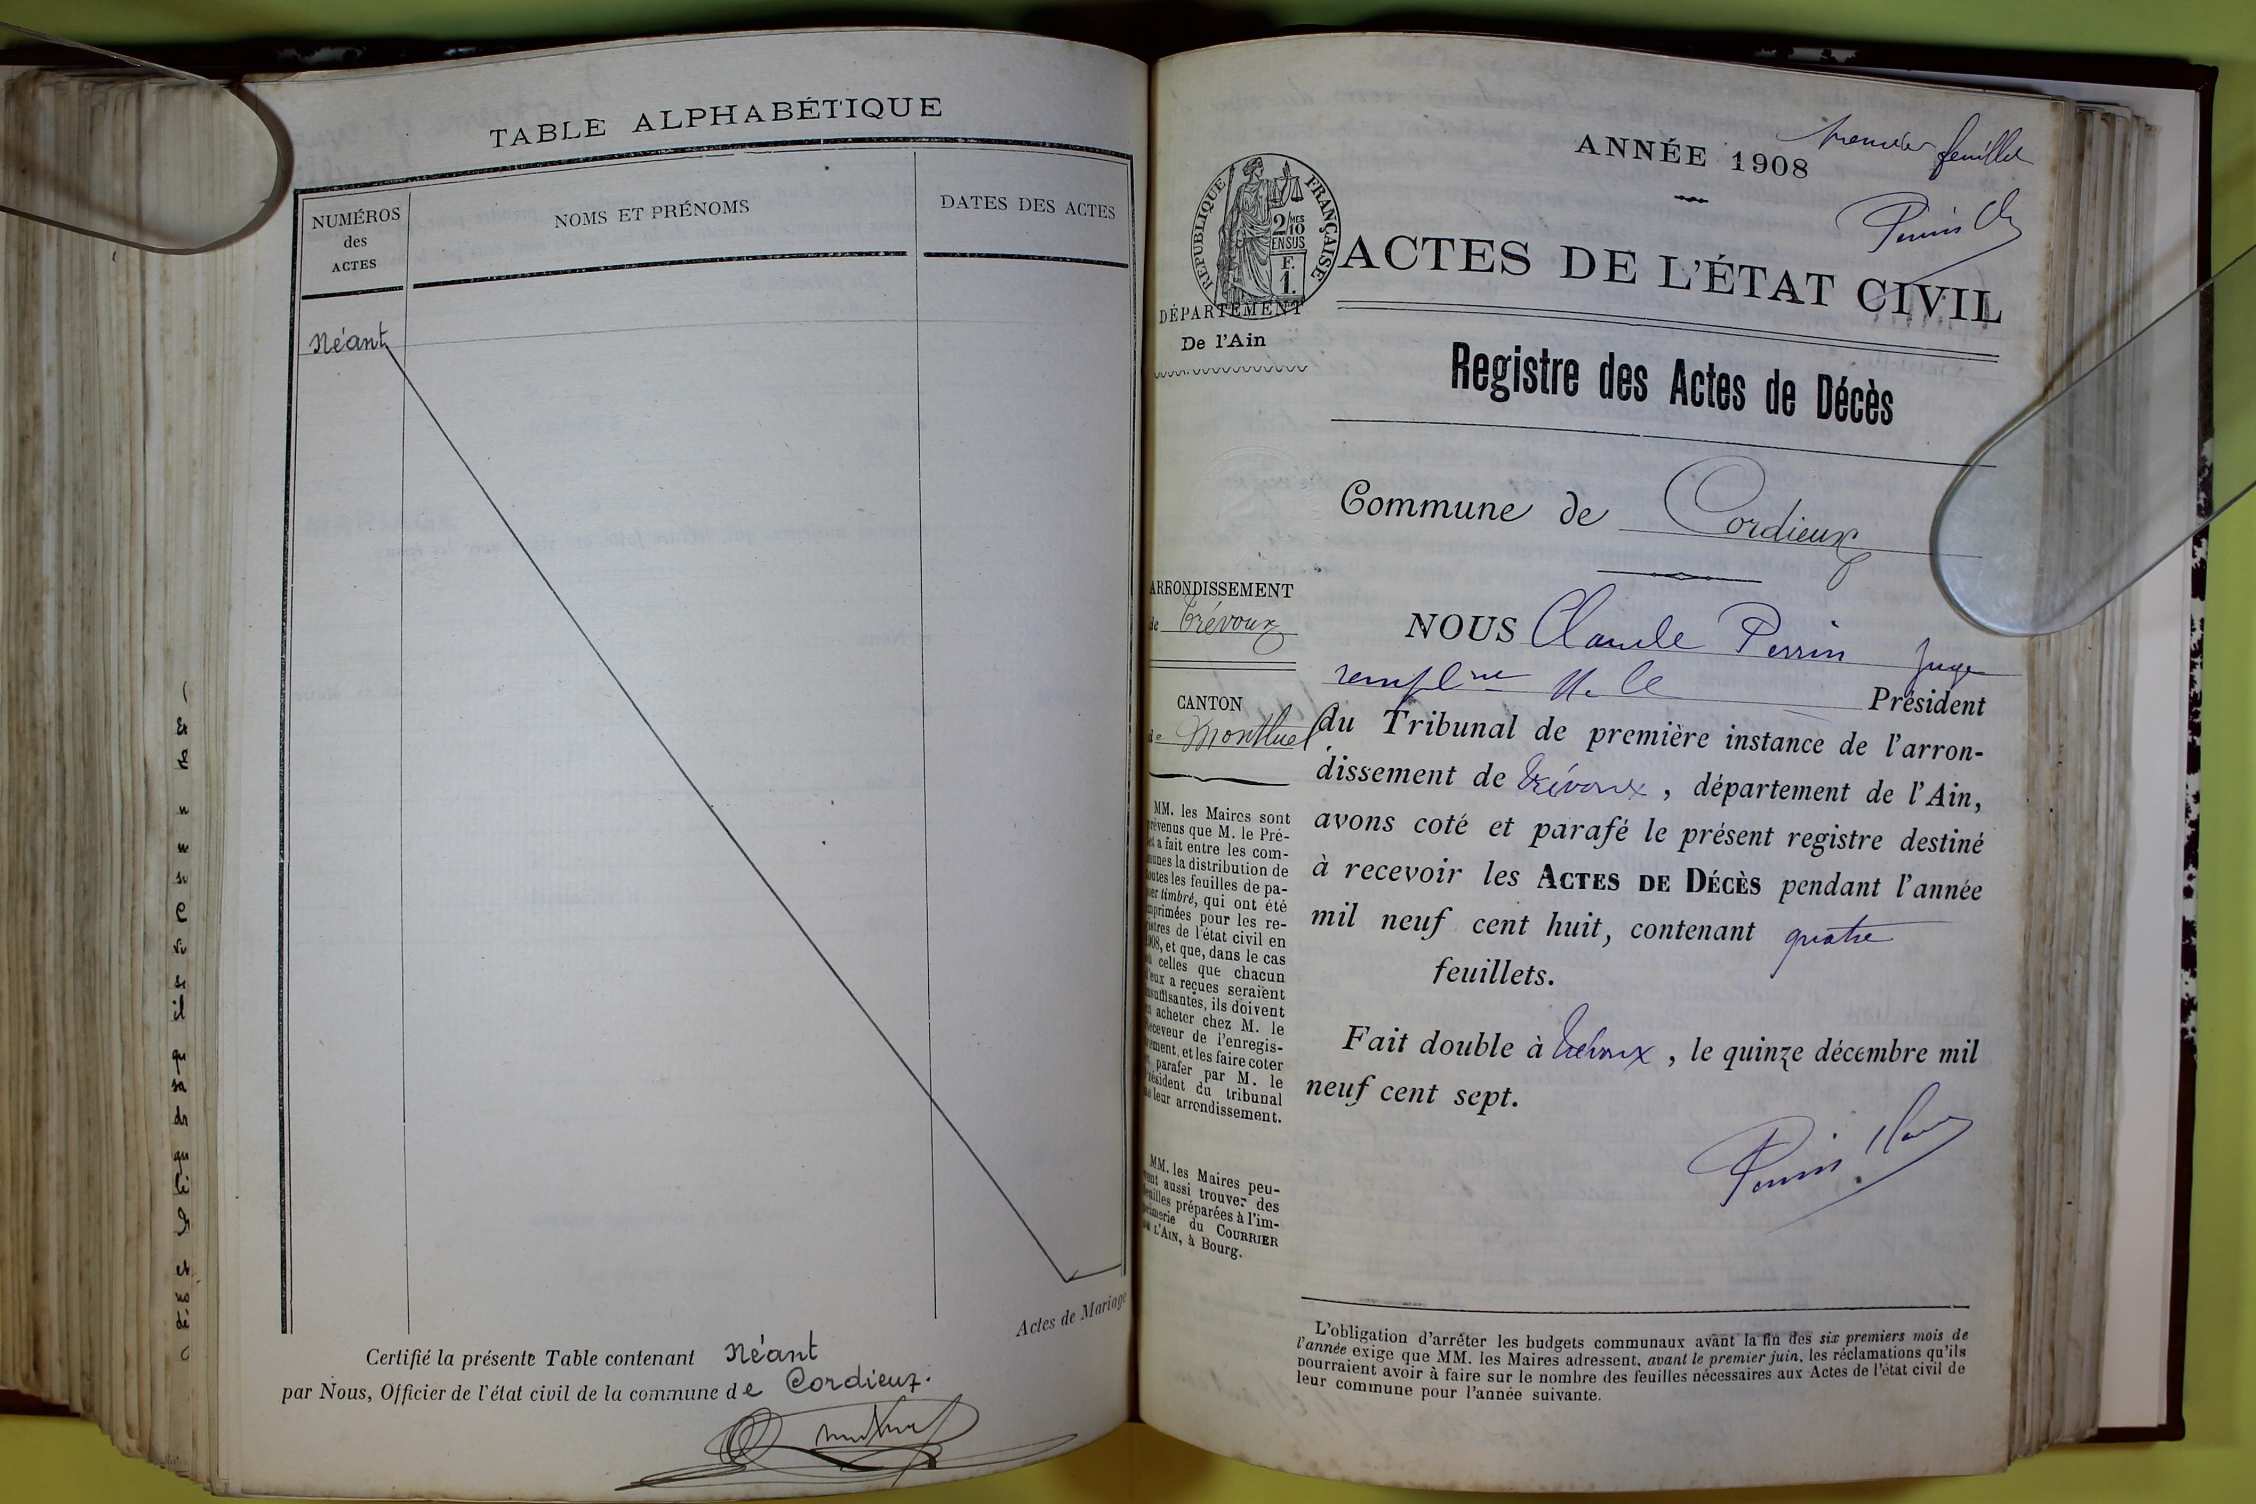 TABLE ALPHABÉTIQUE
NUMÉROS
des
ACTES
NOMS ET PRÉNOMS
DATES DES ACTES
Néant
Actes de Mariage
Certifié la présente Table contenant Néant
par Nous, Officier de l'état civil de la commune de Cordieux.
premier feuillet
ANNÉE 1908
RÉPUBLIQUE FRANÇAISE
2/10 MES
EN SUS
F.
1.
ACTES DE L'ÉTAT CIVIL
DÉPARTEMENT
De l'Ain
Registre des Actes de Décès
Commune de Cordieux
ARRONDISSEMENT
de Trévoux
CANTON
de Montluel
MM. les Maires sont
prévenus que M. le Pré-
fet a fait entre les com-
munes la distribution de
toutes les feuilles de pa-
pier timbré, qui ont été
imprimées pour les re-
gistres de l'état civil en
1908, et que, dans le cas
où celles que chacun
d'eux a reçues seraient
insuffisantes, ils doivent
en acheter chez M. le
Receveur de l'enregis-
trement, et les faire coter
et parafer par M. le
Président du tribunal
de leur arrondissement.
MM. les Maires peu-
vent aussi trouver des
feuilles préparées à l'im-
primerie du COURRIER
DE L'AIN, à Bourg.
NOUS Claude Perrin Juge
Président
du Tribunal de première instance de l'arron-
dissement de Trévoux, département de l'Ain,
avons coté et parafé le présent registre destiné
à recevoir les ACTES DE DÉCÈS pendant l'année
mil neuf cent huit, contenant quatre
feuillets.
Fait double à Trévoux, le quinze décembre mil
neuf cent sept.
L'obligation d'arrêter les budgets communaux avant la fin des six premiers mois de
l'année exige que MM. les Maires adressent, avant le premier juin, les réclamations qu'ils
pourraient avoir à faire sur le nombre des feuilles nécessaires aux Actes de l'état civil de
leur commune pour l'année suivante.